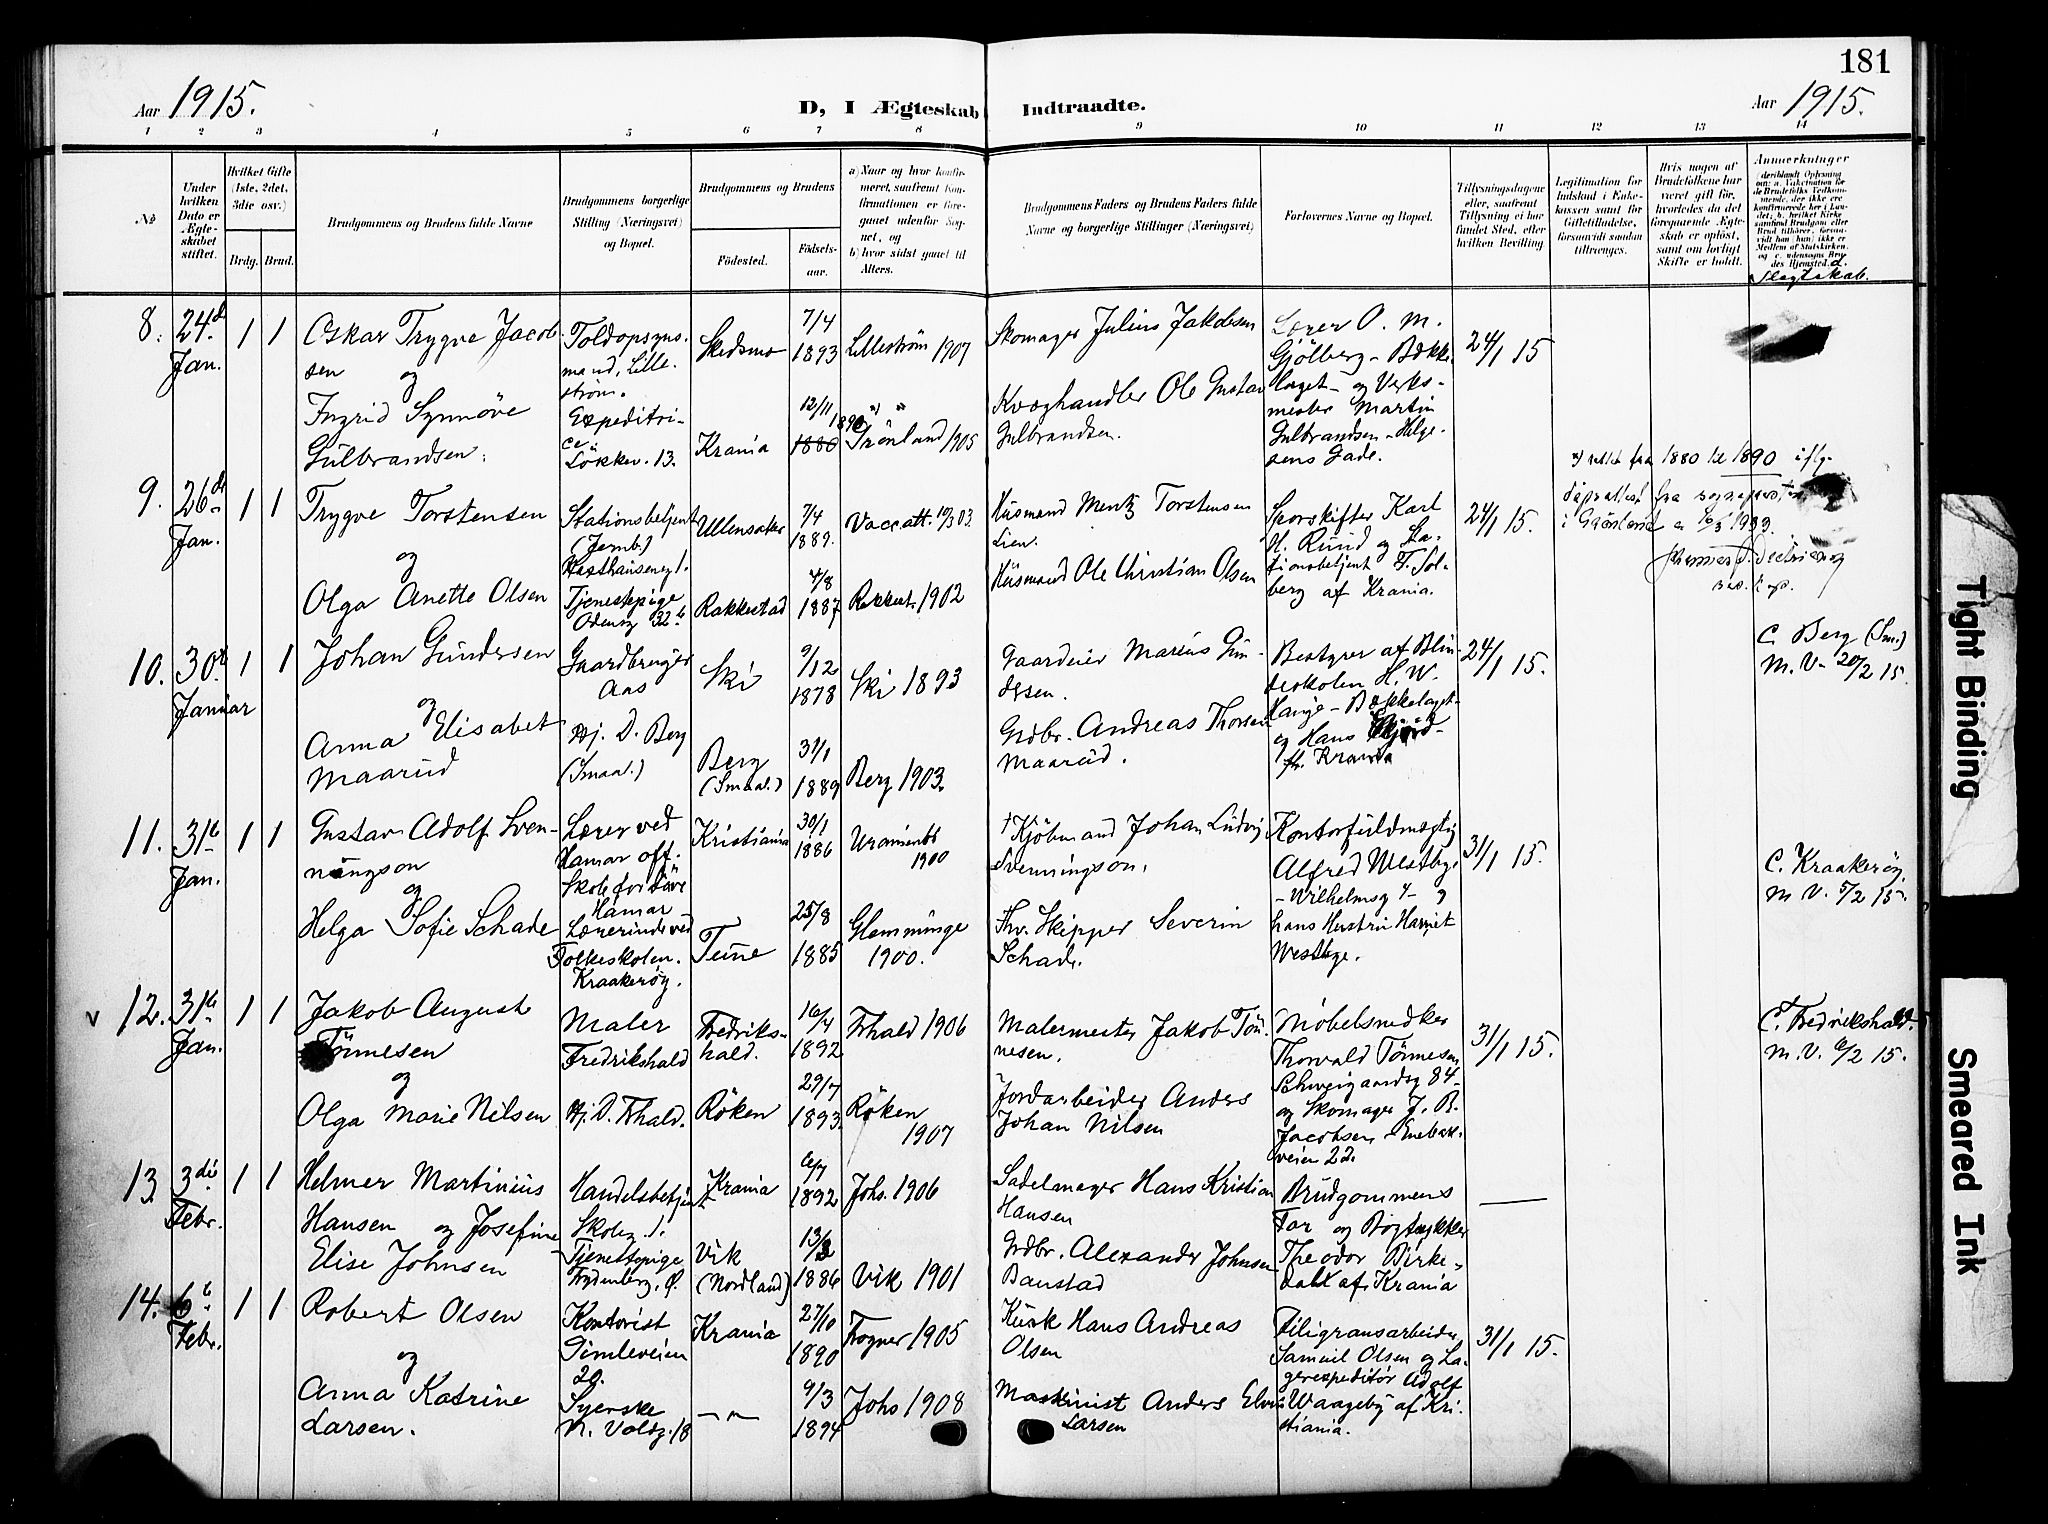 181
Aar 1915.
D, I Ægteskab Indtraadte.
Aar 1915.
1 2 3 4 5 6 7 8 9 10 11 12 13 14
No
Under hvilken Dato er Ægteskabet stiftet.
Hvilket Gifte (1ste, 2det, 3die osv.)
Brdg. Brud.
Brudgommens og Brudens fulde Navne
Brudgommens borgerlige Stilling (Næringsvei) og Bopæl.
Brudgommens og Brudens
Fødested. Fødsels-aar.
a) Naar og hvor konfirmeret, saafremt Konfirmationen er foregaaet udenfor Sognet, og
b) hvor sidst gaaet til Alters.
Brudgommens Faders og Brudens Faders fulde Navne og borgerlige Stillinger (Næringsvei)
Forlovernes Navne og Bopæl.
Tillysningsdagene eller, saafremt Tillysning ei har fundet Sted, efter hvilken Bevilling
Legitimation for Indskud i Enkekassen samt for Giftetilladelse, forsaavidt saadan tiltrænges.
Hvis nogen af Brudefolkene har været gift før, hvorledes da det foregaaende Ægteskab er opløst, samt om lovligt Skifte er holdt.
Anmerkninger
d. Slegtskab.
8. 24de Jan. 1 1
Oskar Trygve Jacobsen
og
Ingrid Synnöve
Gulbrandsen.
Toldopsynsmand, Lillestrøm.
Expeditrice
Løkkev. 13.
Skedsmo 7/4 1893 Lillestrøm 1907
Krania 12/11 1880 1890 Grönland 1905
Skomager Julius Jakobsen
Kvæghandler Ole Gustav
Gulbrandsen.
Lærer O. M.
Gjölberg - Bække
laget - og Verksmester Martin
Gulbrandsen - Helgesens Gade.
24/1 15
rettet fra 1880 til 1890 iflg.
9. 26de Jan. 1 1
Trygve Torstensen
og
Olga Anette Olsen
Stationsbetjent
(Jernb.)
Tjenestepige
Odensg 32
Ullensaker 7/4 1889. Vaccatt. 10/3 03.
Rakkestad 4/8 1887 Rakkest. 1902
Husmand Mentz Torstensen
Lien.
Husmand Ole Christian Olsen
Sporskifter Karl
H. Ruud og Stationsbetjent F. Solberg af Krania.
24/1 15.
10. 30te Januar 1 1
Johan Gundersen
og
Anna Elisabet
Maarud
Gaardbruger
Aas
Hj. D. Berg
(Smaal.)
Ski 9/12 1878 Ski 1893
Berg (Smaal.) 31/1 1889 Berg 1903.
Gaardeier Marius Gundersen.
Grdbr. Andreas Thorsen
Maarud.
Bestyrer af Blindeskolen H. W.
Hauge - Bækkelaget -
og Hans
Krania
24/1 15.
C. Berg (Sm.)
M.V. 20/2 15.
11. 31te Jan. 1 1
Gustav Adolf Svenningson
og
Helga Sofie Schade
Lærer ved
Hamar off.
Skole for Döve
Hamar
Lærerinde ved
Folkeskolen.
Kraakerøy.
Kristiania 30/1 1886 Uranienb 1900
Tune 25/8 1885 Glemminge 1900.
† Kjøbmand Johan Ludvig
Svenningson.
Fhv. Skipper Severin
Schade.
Kontorfuldmægtig
Alfred Westbye
- Wilhelmsg 4 - og
hans Hustru Harriet
Westbye.
31/1 15.
C. Kraakerøy.
M.V. 5/2 15.
v 12. 31te Jan. 1 1
Jakob August
Tönnesen
og
Olga Marie Nilsen
Maler
Fredrikshald
Hj. D. Frhald.
Fredrikshald. 16/4 1892 Frhald 1906
Røken 29/7 1893. Røken 1907
Malermester Jakob Tönnesen.
Jordarbeider Anders
Johan Nilsen
Møbelsnedker
Thorvald Tönnesen
Schweigaardsg 84 -
og Skomager J. B.
Jacobsen - Enebakveien 22.
31/1 15.
C. Fredrikshald.
M.V. 6/2 15.
13. 3die Febr. 1 1
Helmer Martinius
Hansen og Josefine
Elise Johnsen
Handelsbetjent
Skoleg. 1.
Tjenestepige
Frydenberg, Ø.
Krania 6/7 1892 Johs. 1906
Vik (Nordland) 13/3 1886 Vik 1901
Sadelmager Hans Kristian
Hansen
Grdbr. Alexander Johnsen
Baustad
Brudgommens
Far og Bogtrykker
Theodor Birkedahl af Krania
14. 6te Febr. 1 1
Robert Olsen
og
Anna Katrine
Larsen.
Kontorist
Gimleveien
20.
Syerske
N. Voldg. 18
Krania 27/10 1890 Frogner 1905
— " — 9/3 1894 Johs 1908
Kusk Hans Andreas
Olsen
Maskinist Anders
Larsen
Filigransarbeider
Samuel Olsen og Lagerexpeditör Adolf
Waageby af Kristiania.
31/1 15.
Tight Binding
Smeared Ink